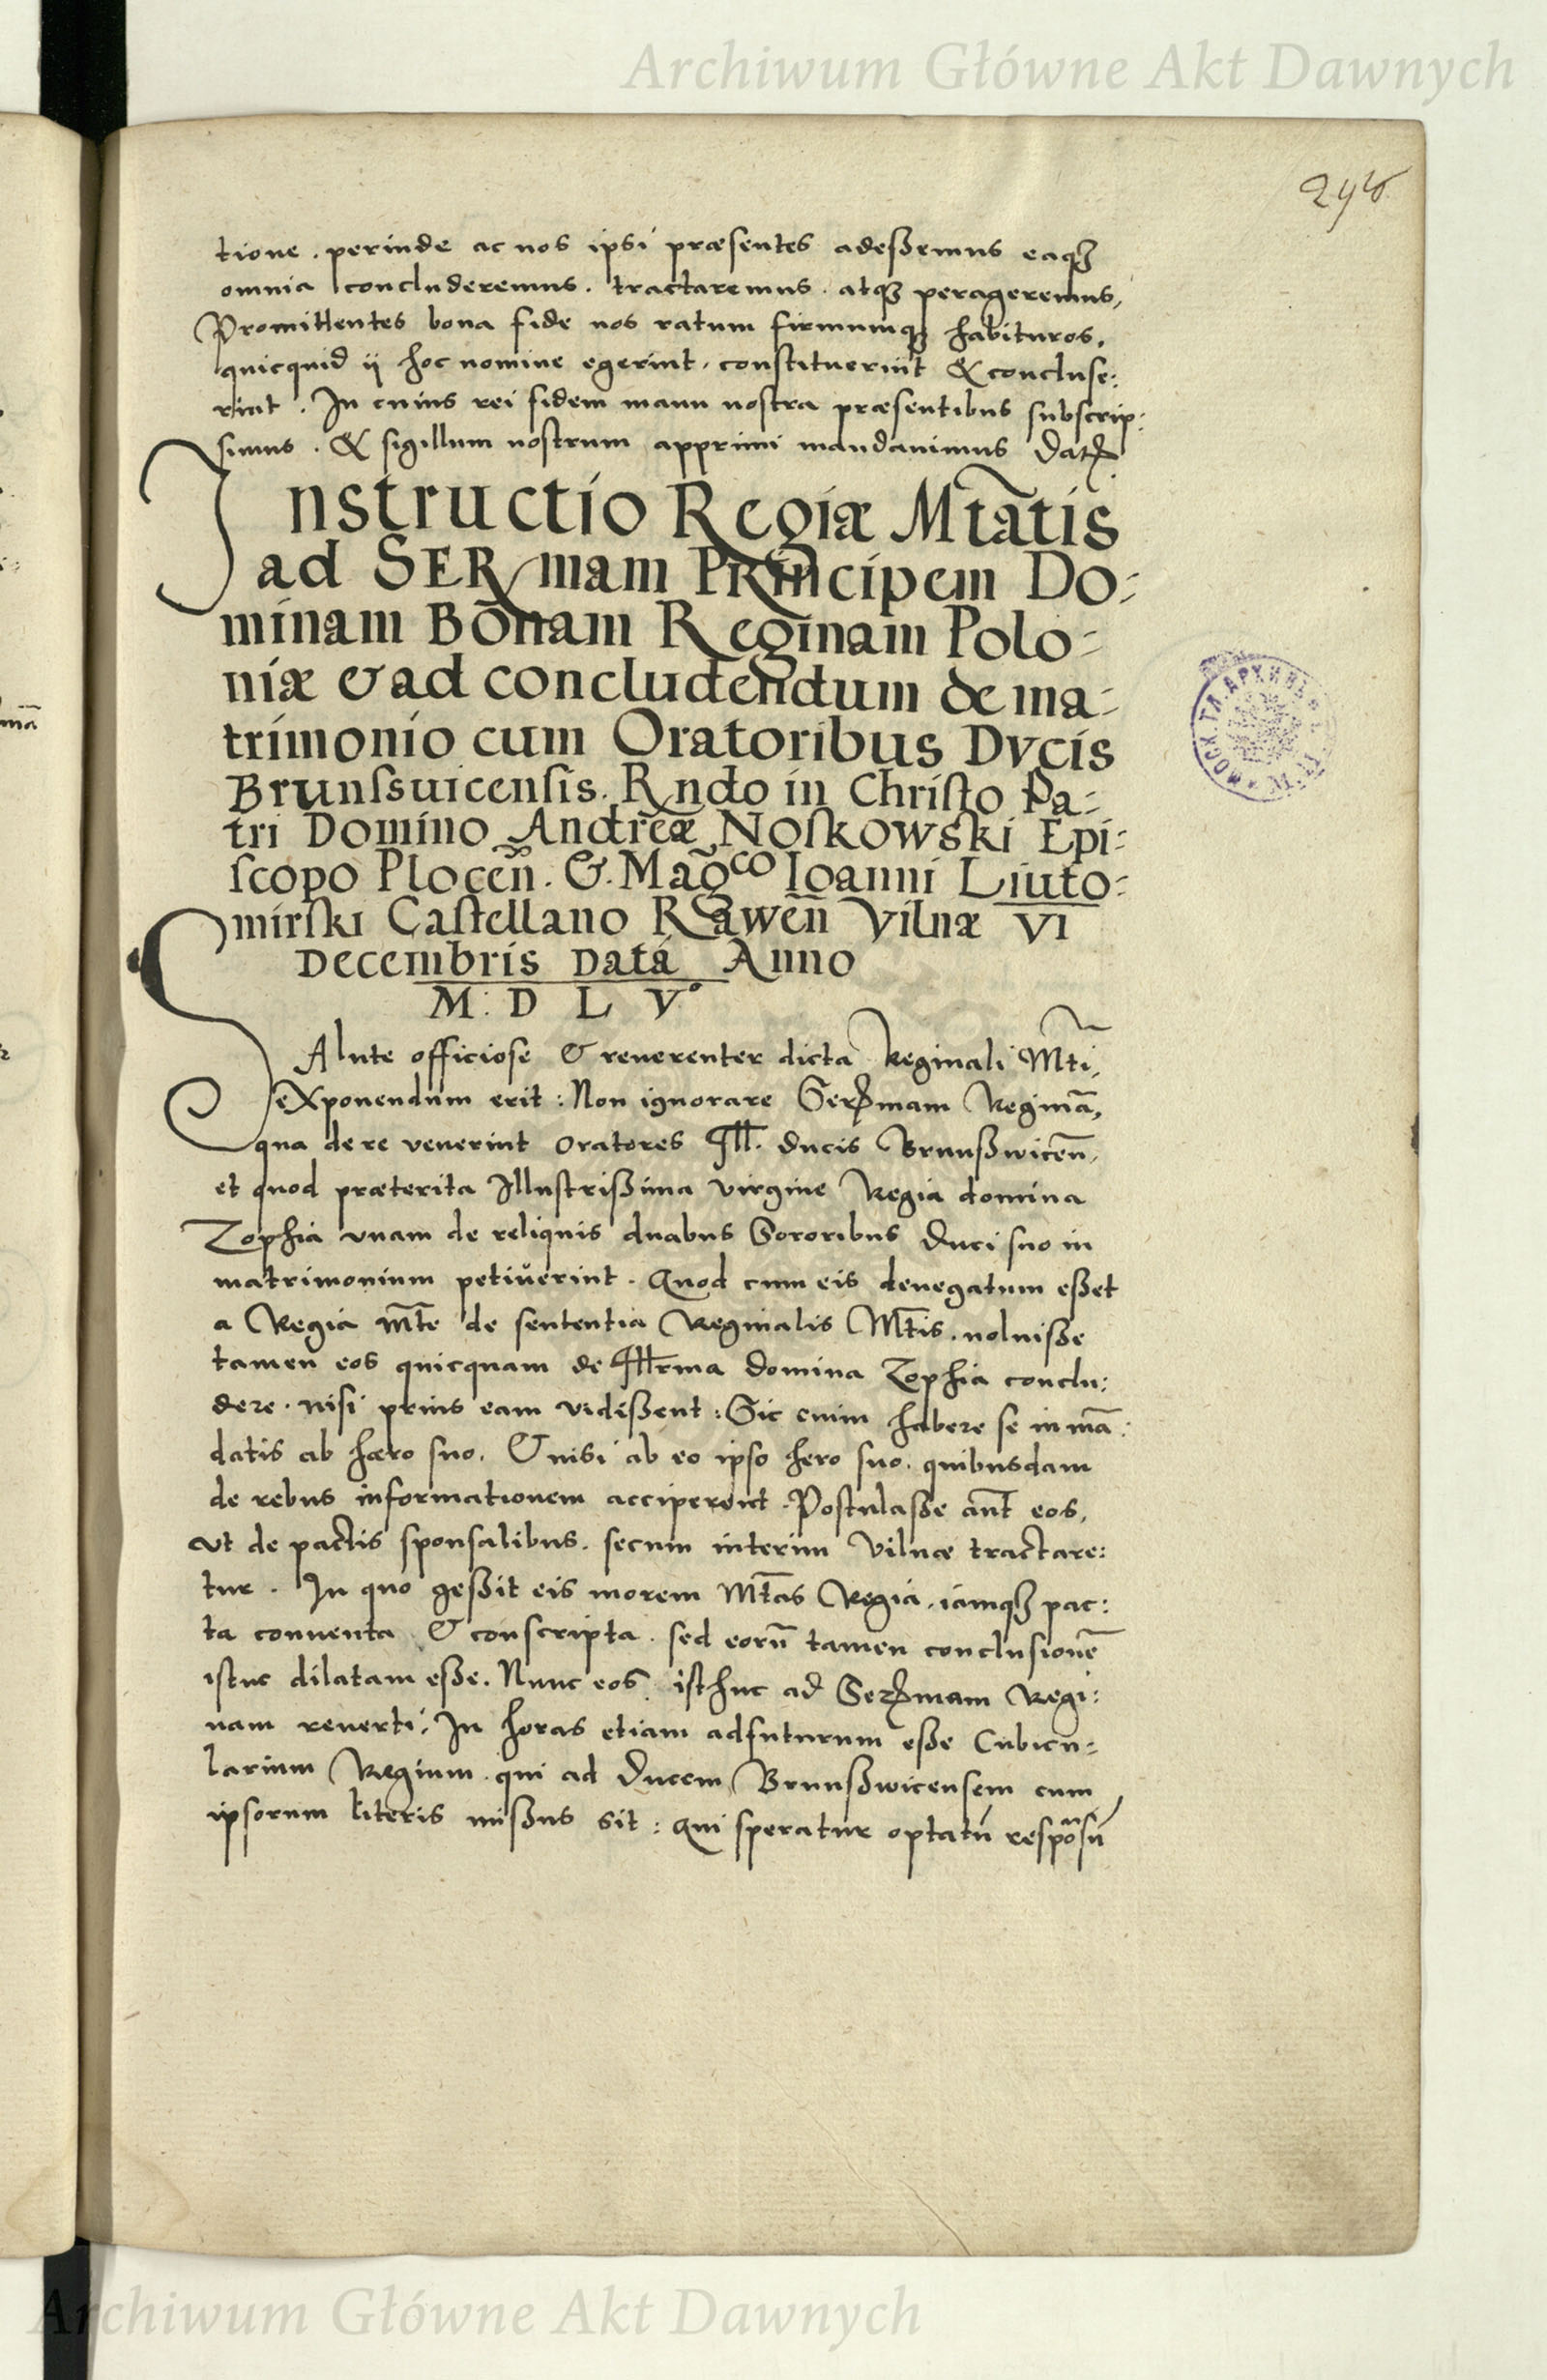 Archiwum Główne Akt Dawnych
tione . perinde ac nos ipsi præsentes adeßemus eaq₃
omnia concluderemus . tractaremus . atq₃ perageremus,
Promittentes bona fide nos ratum firmumq₃ habituros,
quicquid ij hoc nomine egerint, constituerint & concluse:
rint . In cuius rei fidem manu nostra præsentibus subscrip:
simus . & sigillum nostrum apprimi mandauimus Datꝝ
Instructio Regiæ Mtãtis
ad SERmam PRincipem Do:
minam Bonam Reginam Polo-
niæ & ad concludendum de ma-
trimonio cum Oratoribus Dvcis
Brunſsuicenſis. Rndo in Chriſto Pa-
tri Domino Andreæ Noſkowſki Epi:
ſcopo Plocen̄. & Mag̃co Ioanni Liuto:
mirſki Caſtellano Rawen̄ Vilnæ VI
Decembris Data Anno
M: D L V°
SAlute officiose & reuerenter dicta Reginali Mt̃i,
exponendum erit : Non ignorare Serꝝmam Reginã,
qua de re venerint Oratores Ill. ducis Brunßwiceñ,
et quod præterita Illustrißima virgine Regia domina
Zophia vnam de reliquis duabus Sororibus Duci suo in
matrimonium petiuerint . Quod cum eis denegatum eßet
a Regia Mt̃e de sententia Reginalis Mt̃is . noluiße
tamen eos quicquam de Illrma Domina Zophia conclu:
dere . nisi prius eam vidißent : Sic enim habere se in mã:
datis ab hæro suo. Et nisi ab eo ipso hero suo . quibusdam
de rebus informationem acciperent . Postulaße aũt eos,
vt de pactis sponsalibus . secum interim Vilnæ tractare:
tur . In quo geßit eis morem Mt̃as Regia . iamq₃ pac:
ta conuenta & conscripta . sed eorũ tamen conclusionẽ
istuc dilatam eße. Nunc eos isthuc ad Serꝝmam Regi:
nam reuerti : In horas etiam adfuturum eße Cubicu:
larium Regium . qui ad Ducem Brunßwicensem cum
ipsorum literis mißus sit : Qui speratur optatũ respõsũ
Archiwum Główne Akt Dawnych